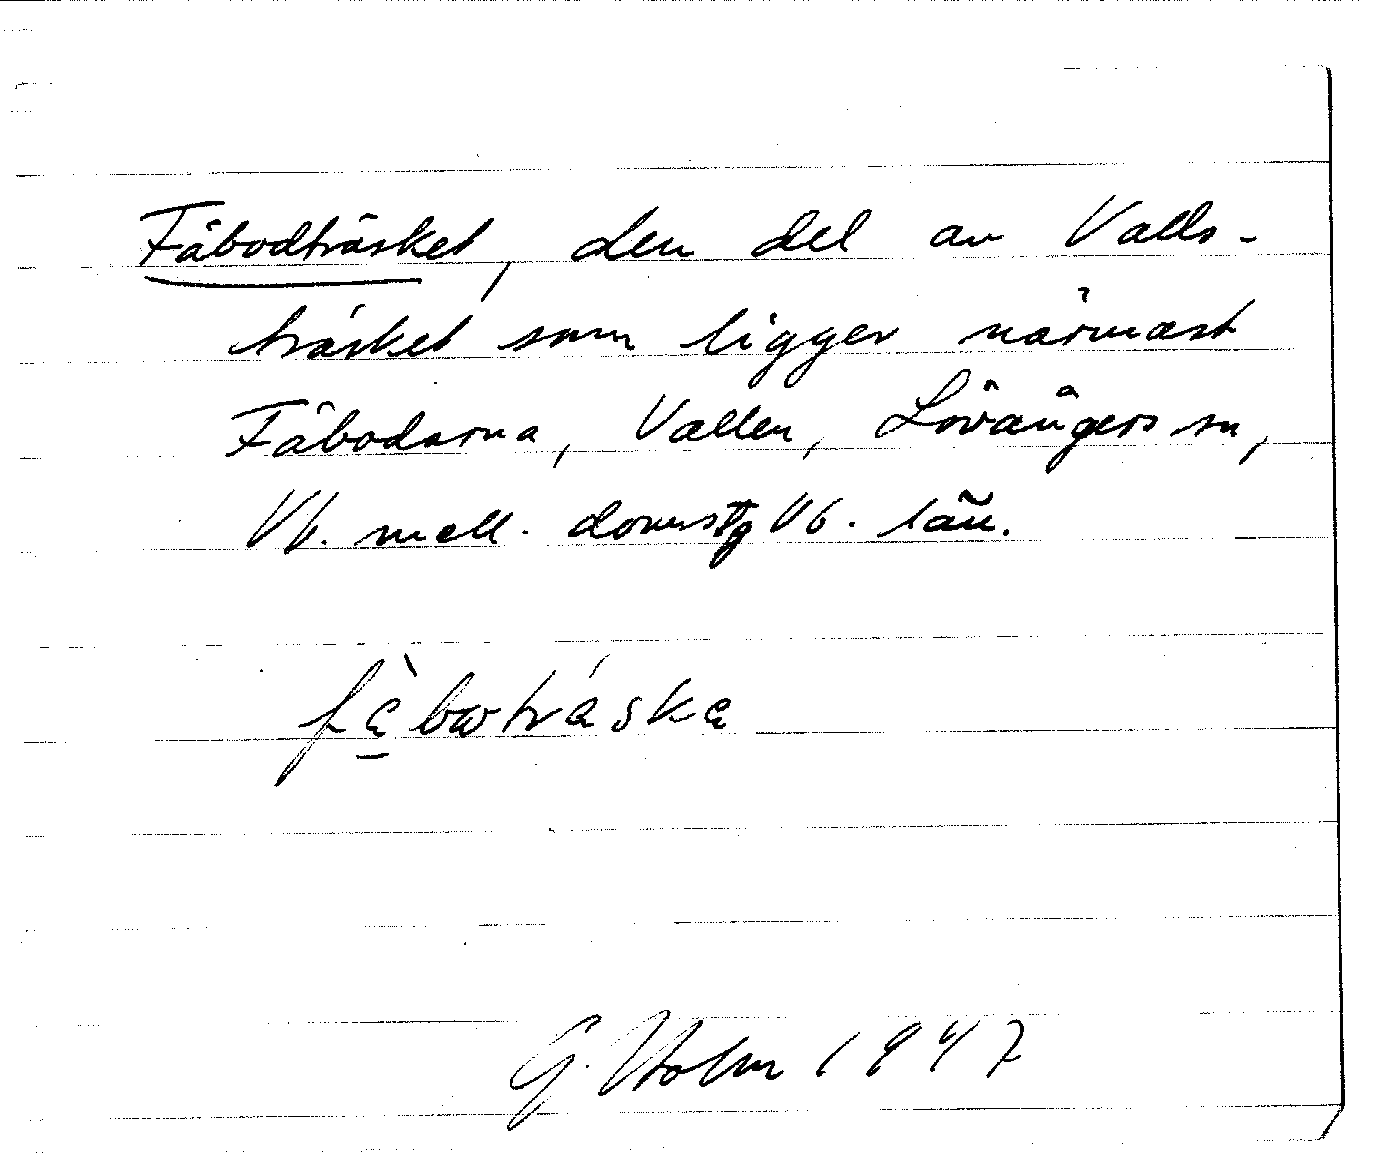 Fäbodträsket, den del av Valls-
träsket som ligger närmast
Fäbodarna, Vallen, Lövångers sn,
Vb. mell. domstg Vb. län.
fä̀bωtráskα
G. Holm 1947